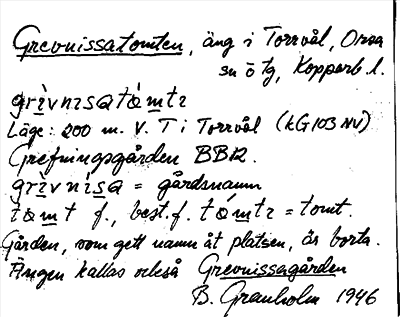 Grevnissatomten, äng i Torrvål, Orsa
sn ö tg, Kopparb. l.
grìvnɪsatómtɪ
Läge: 200 m. V. T i Torrvål (kG103 NV)
Grefningsgården BB12.
grìvnísa = gårdsnamn
tómt f., best. f. tómtɪ = tomt.
Gården, som gett namn åt platsen, är borta.
Ängen kallas också Grevnissagården
B. Granholm 1946